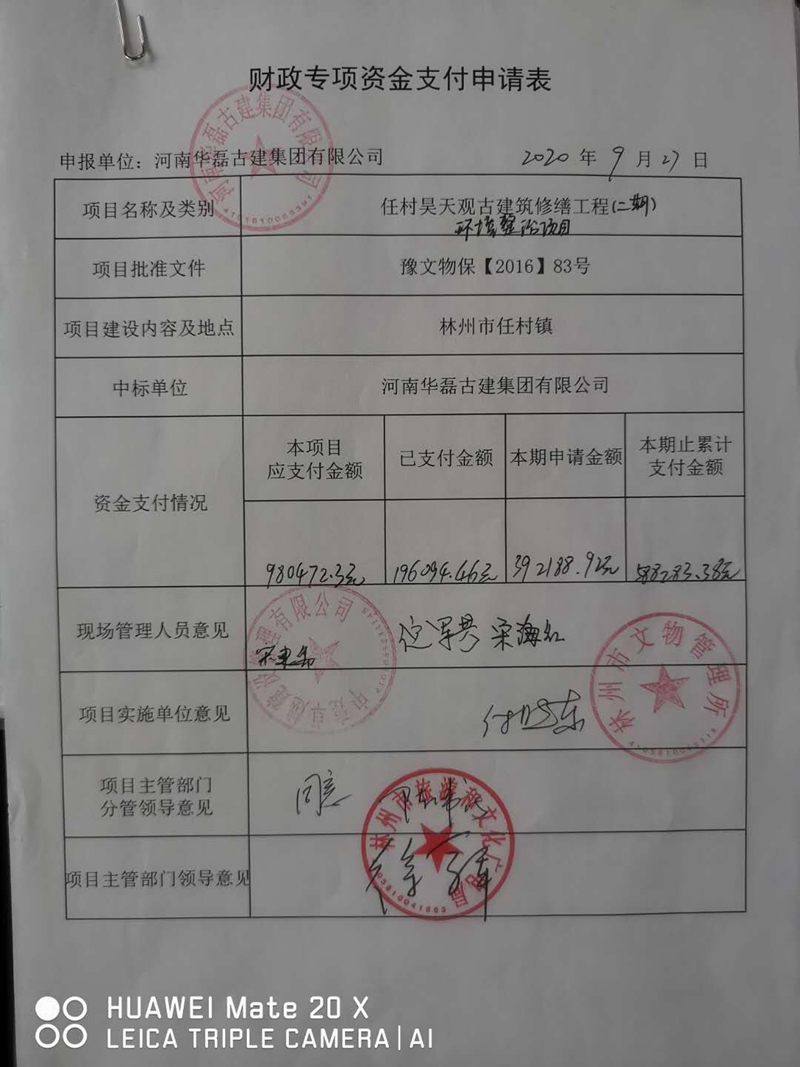 财政专项资金支付申请表
申报单位：河南华磊古建集团有限公司 2020 年 9 月 27 日
项目名称及类别 任村昊天观古建筑修缮工程(二期)
环境整治项目
项目批准文件 豫文物保【2016】83号
项目建设内容及地点 林州市任村镇
中标单位 河南华磊古建集团有限公司
资金支付情况
本项目
应支付金额
已支付金额
本期申请金额
本期止累计
支付金额
980472.3元 196094.46元 392188.92元 588283.38元
现场管理人员意见
宋海红
项目实施单位意见
林州市文物管理所
项目主管部门
分管领导意见
同意
项目主管部门领导意见
HUAWEI Mate 20 X
LEICA TRIPLE CAMERA | AI